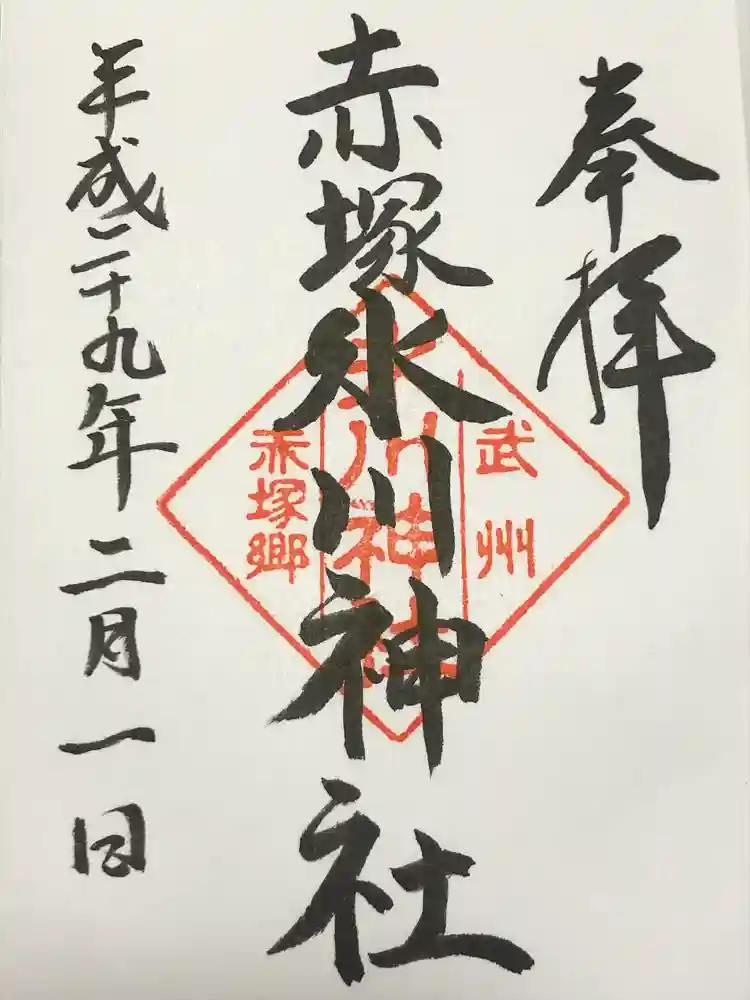 奉拝
赤塚氷川神社
平成二十九年二月一日
武州
氷川神社
赤塚郷